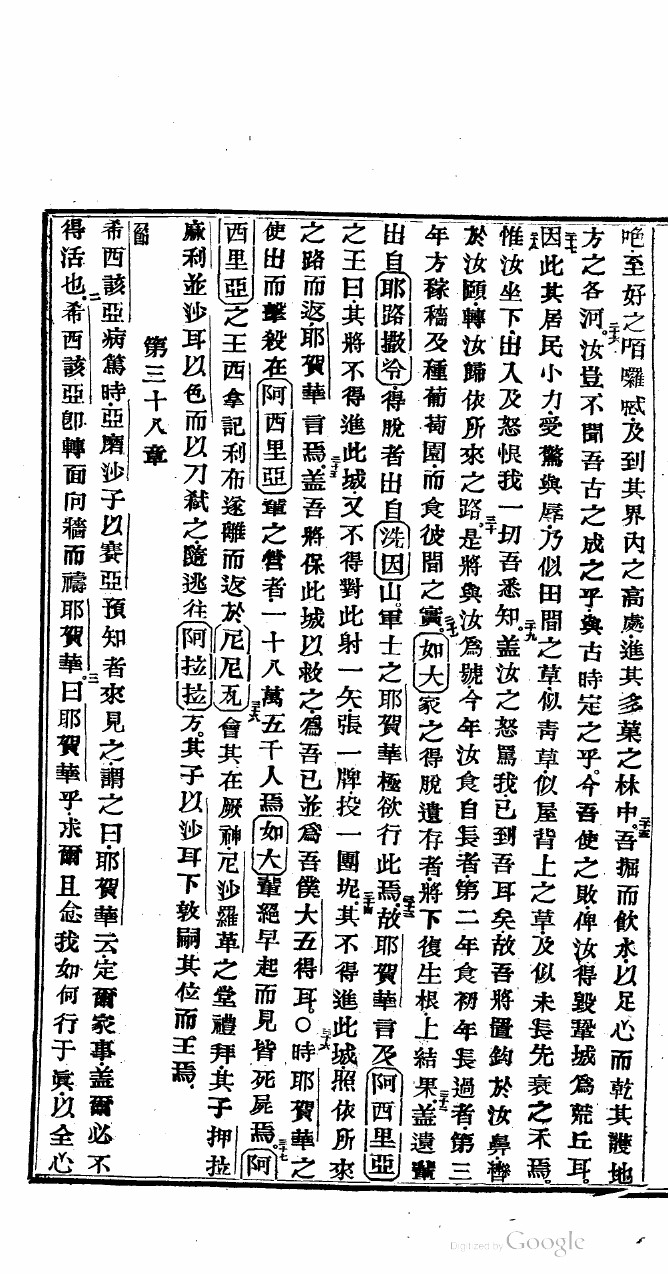 唣至好之啞囉嘁及到其界內之高處進其多菓之林中二十五吾掘而飲水以足心而乾其護地
方之各河二十六汝豈不聞吾古之成之乎與古時定之乎今吾使之敗俾汝得毀鞏城爲荒丘耳
二十七因此其居民小力受驚與辱乃似田間之草似靑草似屋背上之草及似未長先衰之禾焉
二十八惟汝坐下出入及怒恨我一切吾悉知二十九蓋汝之怒罵我已到吾耳矣故吾將置鈎於汝鼻轡
於汝頤轉汝歸依所來之路三十是將與汝爲號今年汝食自長者第二年食初年長過者第三
年方稼穡及種葡萄園而食彼間之實三十一如大家之得脫遺存者將下復生根上結果三十二蓋遺輩
出自耶路撒冷得脫者出自洗因山軍士之耶賀華極欲行此焉三十三故耶賀華言及阿西里亞
之王曰其將不得進此城又不得對此射一矢張一牌投一團坭三十四其不得進此城照依所來
之路而返耶賀華言焉三十五蓋吾將保此城以救之爲吾已並爲吾僕大五得耳○三十六時耶賀華之
使出而擊殺在阿西里亞輩之營者一十八萬五千人焉如大輩絕早起而見皆死屍焉三十七阿
西里亞之王西拿記利布遂離而返於尼尼瓦三十八會其在厥神尼沙羅革之堂禮拜其子押拉
麻利並沙耳以色而以刀弒之隨逃往阿拉拉方其子以沙耳下敦嗣其位而王焉
第三十八章
希西該亞病篤時亞磨沙子以賽亞預知者來見之謂之曰耶賀華云定爾家事蓋爾必不
得活也二希西該亞卽轉面向牆而禱耶賀華三曰耶賀華乎求爾且念我如何行于眞以全心
Digitized by Google